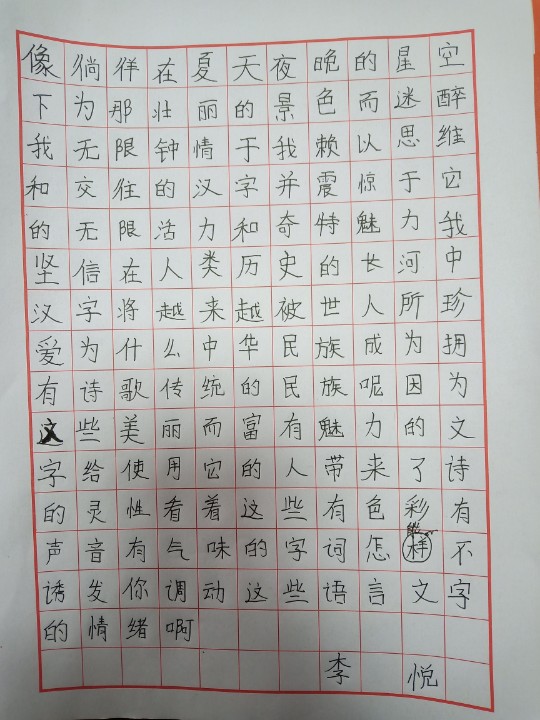 像徜徉在夏天夜晚的星空
下为那壮丽的景色而迷醉
我无限钟情于我赖以思维
和交往的汉字并震惊于它
的无限活力和奇特魅力我
坚信在人类历史的长河中
汉字将越来越被世人所珍
爱为什么中华民族成为拥
有诗歌传统的民族呢因为
这些美丽而富有魅力的文
字给使用它的人带来了诗
的灵性看着这些有色彩有
声音有气味的字词怎能不
诱发你调动这些语言文字
的情绪啊
李悦